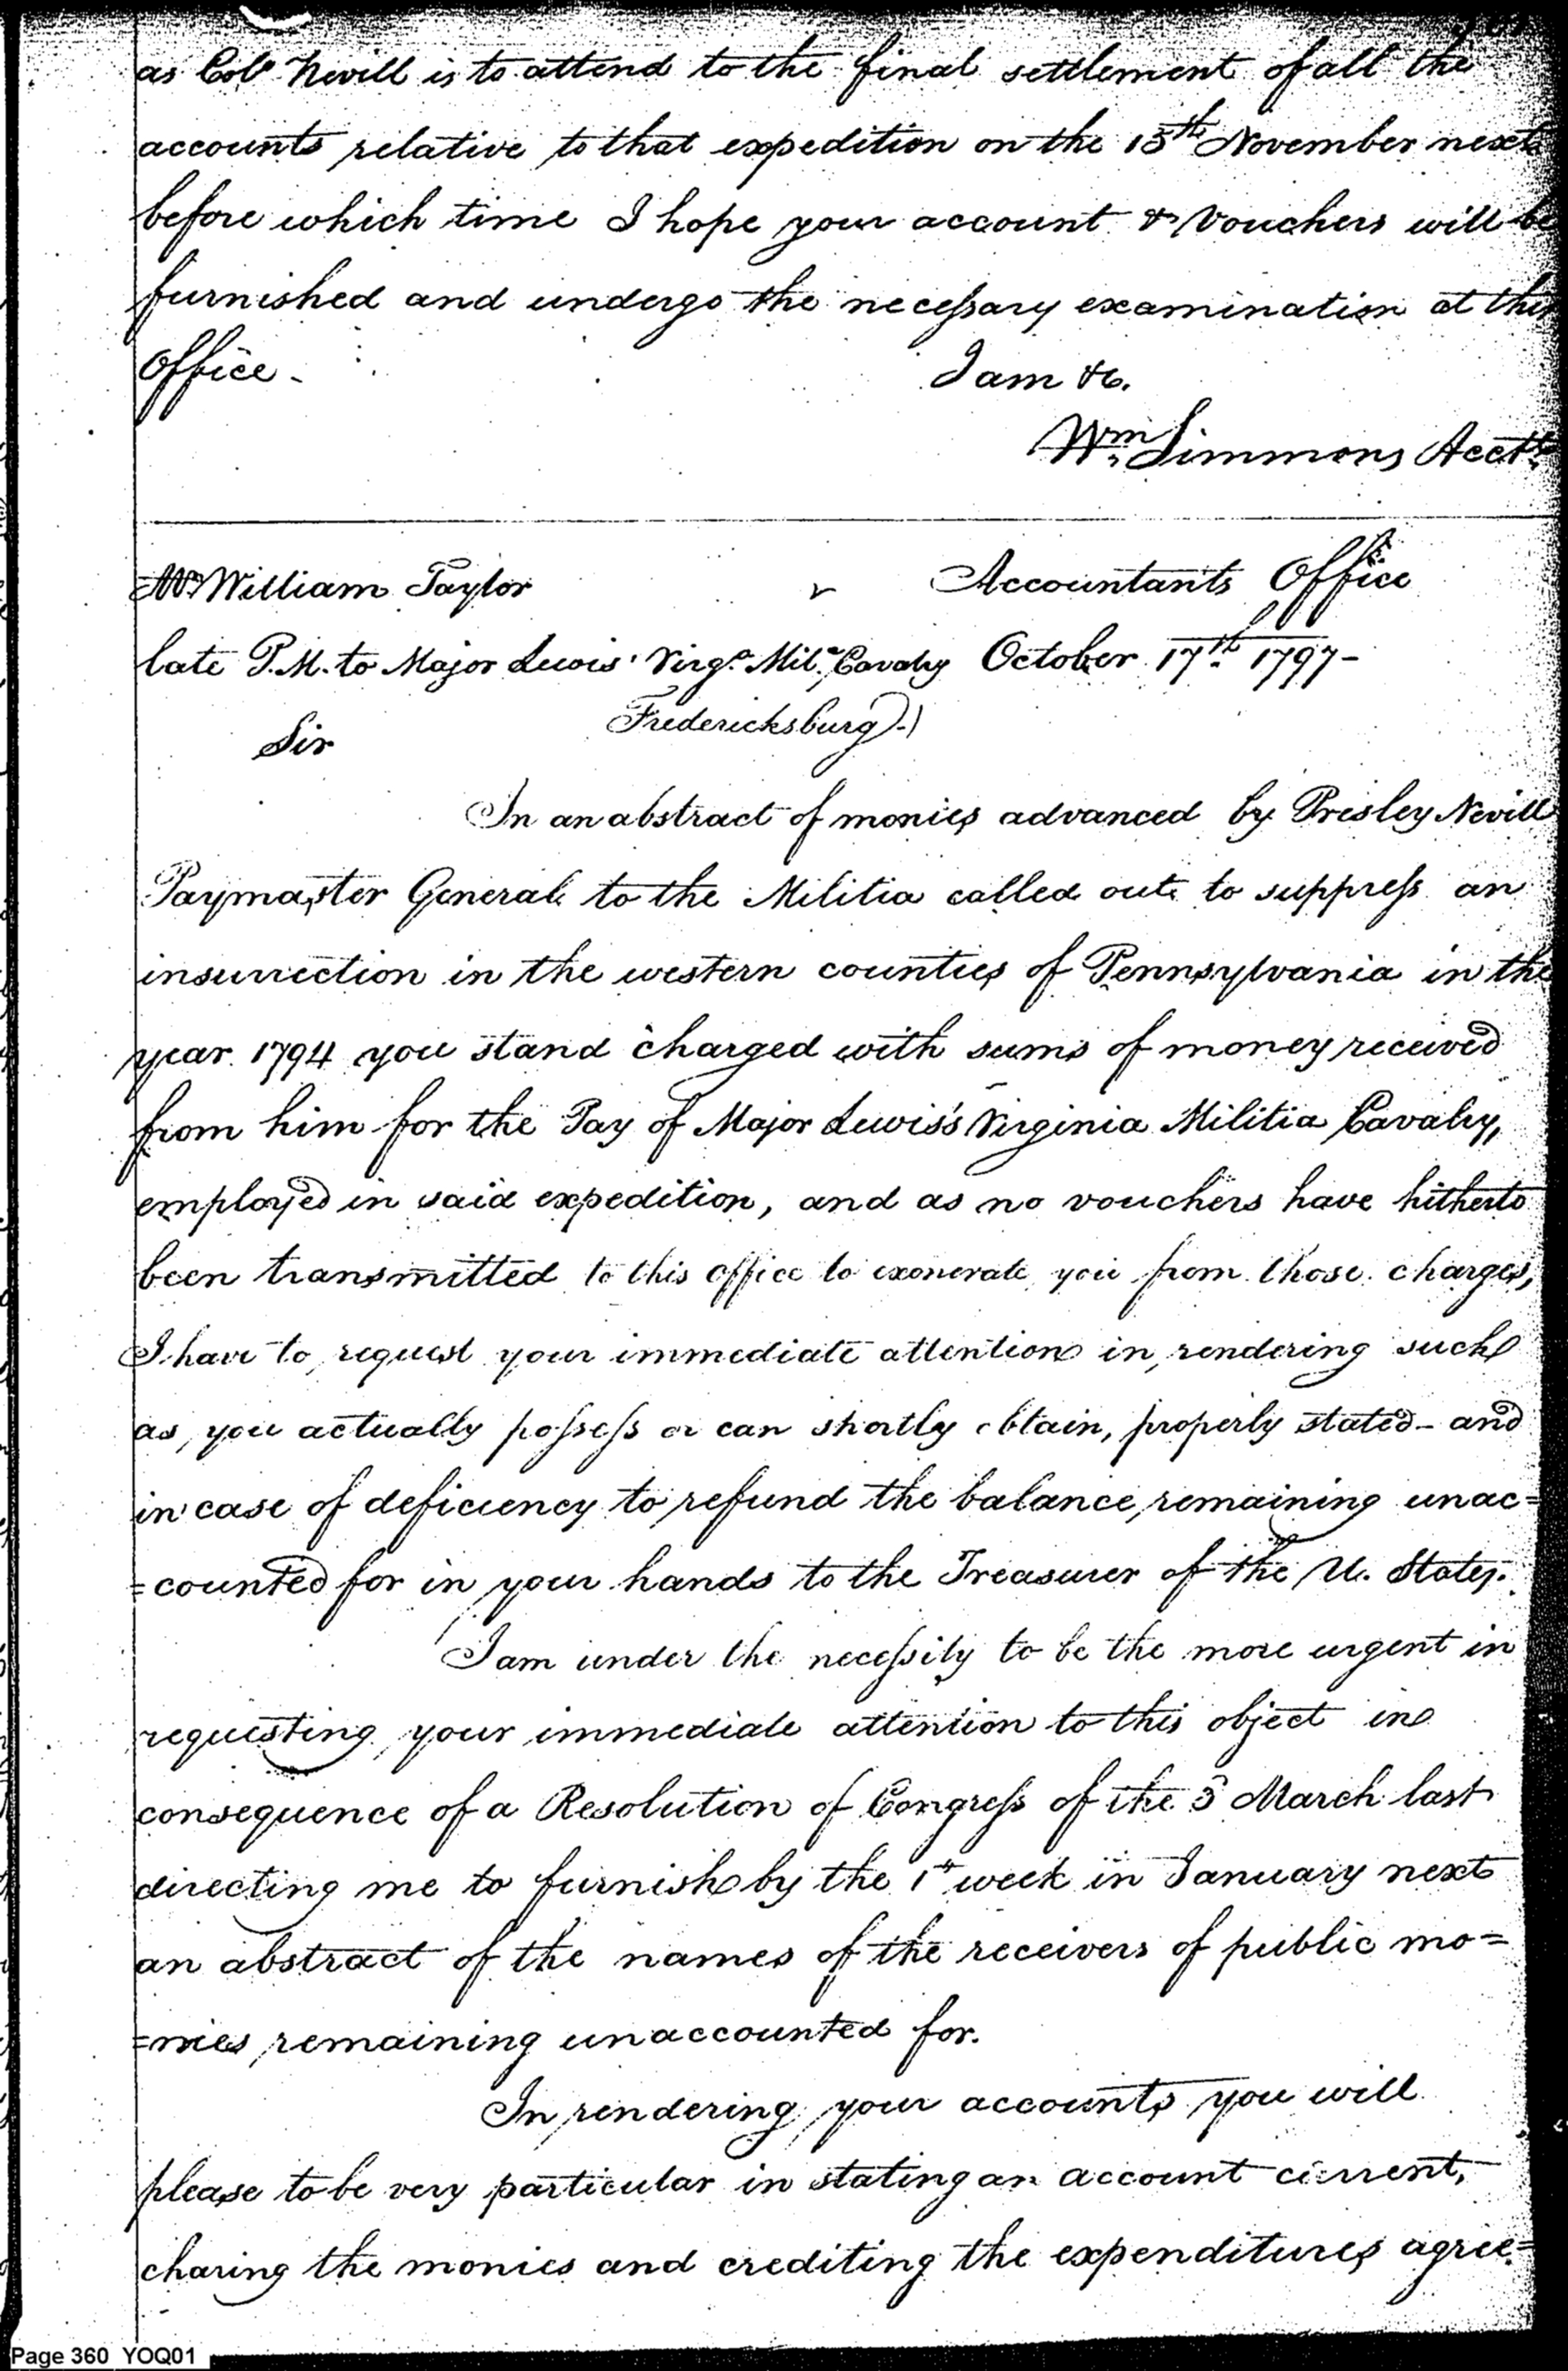 as Colo Nevill is to attend to the final settlement of all the
accounts relative to that expedition on the 15th November next
before which time I hope your account & Vouchers will be
furnished and undergo the necessary examination at this
Office.
I am &c.
Wm Simmons Acctt.
Mr William Taylor
Accountants Office
late P.M. to Major Lewis' Virga. Mila. Cavalry October 17th 1797-
Fredericksburg.)
Sir
In an abstract of monies advanced by Presley Nevill
Paymaster General to the Militia called out to suppress an
insurrection in the western counties of Pennsylvania in the
year 1794 you stand charged with sums of money received
from him for the Pay of Major Lewis's Virginia Militia Cavalry,
employed in said expedition, and as no vouchers have hitherto
been transmitted to this office to exonerate you from those charges,
I have to request your immediate attention in rendering such
as you actually possess or can shortly obtain, properly stated- and
in case of deficiency to refund the balance remaining unac=
=counted for in your hands to the Treasurer of the U. States.
I am under the necessity to be the more urgent in
requesting your immediate attention to this object in
consequence of a Resolution of Congress of the 3 March last
directing me to furnish by the 1st week in January next
an abstract of the names of the receivers of public mo=
=nies remaining unaccounted for.
In rendering your accounts you will
please to be very particular in stating an account current,
charing the monies and crediting the expenditures agree=
Page 360 YOQ01